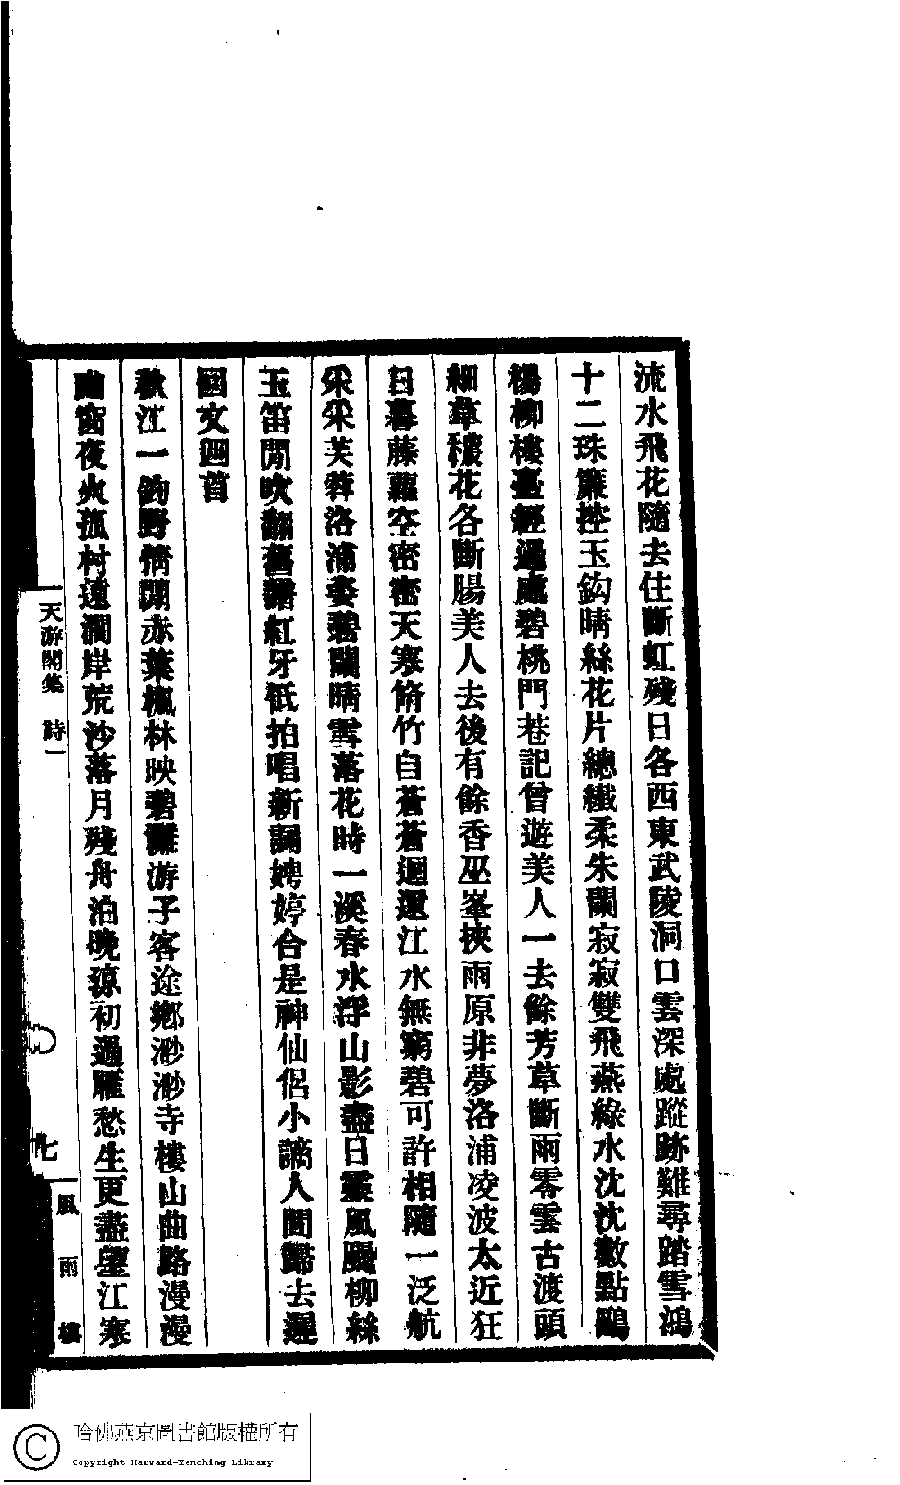 流水飛花隨去住斷虹殘日各西東武陵洞口雲深處蹤跡難尋踏雪鴻
十二珠簾控玉鈎晴絲花片總纖柔朱闌寂寂雙飛燕綠水沈沈數點鷗
楊柳樓臺經過處碧桃門巷記曾遊美人一去餘芳草斷雨零雲古渡頭
細草穠花各斷腸美人去後有餘香巫峯挾雨原非夢洛浦凌波太近狂
日暮藤蘿空密密天寒脩竹自蒼蒼迴還江水無窮碧可許相隨一泛航
采采芙蓉洛浦姿碧闌晴雪落花時一溪春水浮山影盡日靈風颺柳絲
玉笛閒吹翻舊譜紅牙低拍唱新詞娉婷合是神仙侶小謫人間歸去遲
回文四首
秋江一釣野情閒赤葉楓林映碧灘游子客途鄉渺渺寺樓山曲路漫漫
幽窗夜火孤村遠澗岸荒沙落月殘舟泊晚涼初過雁愁生更盡望江寒
天游閣集 詩一
七
風雨樓
哈佛燕京圖書館版權所有
Copyright Harvard-Yenching Library